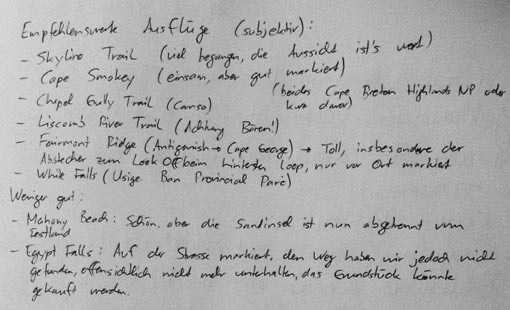 Empfehlenswerte Ausflüge (subjektiv):
- Skyline Trail (viel begangen, die Aussicht ist's wert)
- Cape Smokey (einsam, aber gut markiert)
(beides Cape Breton Highlands NP oder
- Chapel Gully Trail (Canso) kurz davor)
- Liscomb River Trail (Achtung Bären!)
- Fairmont Ridge (Antigonish → Cape George) → Toll, insbesondere der
Abstecher zum Look Off beim hintersten Loop, nur vor Ort markiert
- White Falls (Usige Ban Provincial Parc)
Weniger gut:
- Mahony Beach: Schön, aber die Sandinsel ist nun abgetrennt vom
Festland
- Egypt Falls: Auf der Strasse markiert, den Weg haben wir jedoch nicht
gefunden, offensichtlich nicht mehr unterhalten, das Grundstück könnte
gekauft werden.